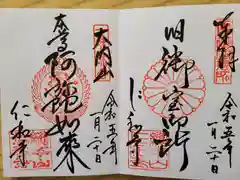 奉拝
令和五年
一月二十日
旧御室御所
仁和寺
大内山
令和五年
一月二十日
本尊
阿弥陀如来
仁和寺